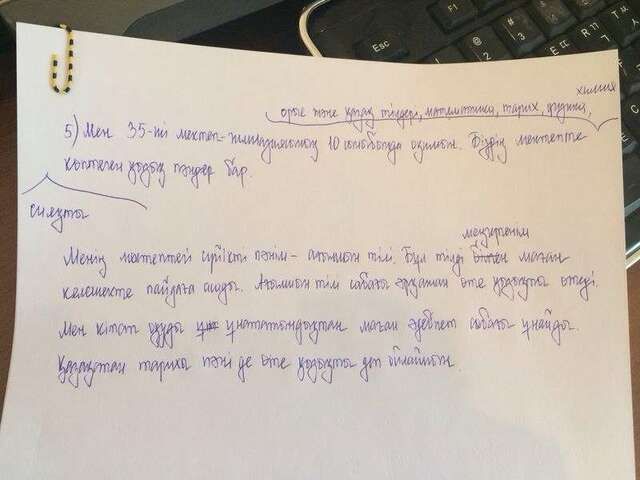 химия
орыс және қазақ тілдері, математика, тарих, физика,
5) Мен 35-ші мектеп-гимназияның 10 сыныбында оқимын. Біздің мектепте
көптеген қызық пәндер бар.
сияқты
меңгергенім
Менің мектептегі сүйікті пәнім - ағылшын тілі. Бұл тілді білген маған
келешекте пайдаға асады. Ағылшын тілі сабағы әрқашан өте қызықты өтеді.
Мен кітап оқуды ұнататындықтан маған әдебиет сабағы ұнайды.
Қазақстан тарихы пәні де өте қызықты деп ойлаймын.
Esc